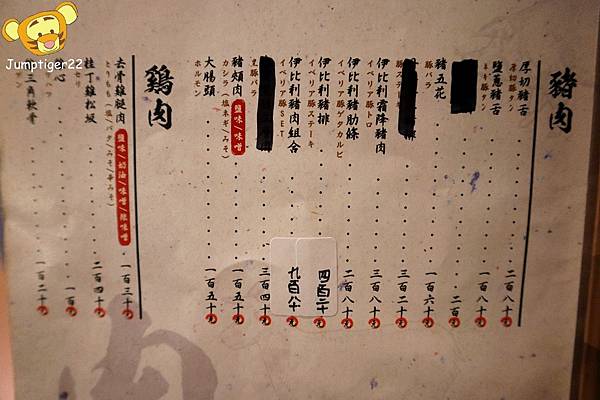 Jumptiger22
豬肉
厚切豬舌 二百八十元
厚切豚タン
鹽蔥豬舌 一百八十元
ネギ豚タン
二百元
豬五花 一百六十元
豚バラ
三百二十元
豚ステーキ
伊比利霜降豬肉 三百八十元
イベリア豚トロ
伊比利豬肋條 二百八十元
イベリア豚ゲタカルビ
伊比利豬排 四百二十元
イベリア豚ステーキ
伊比利豬肉組合 九百八十元
イベリア豚SET
三百四十元
黑豚バラ
豬頰肉 鹽味/味噌 一百五十元
カシラ(塩ネギ/みそ)
大腸頭 一百五十元
ホルモン
鶏肉
去骨雞腿肉 鹽味/奶油/味噌/辣味噌 一百三十元
とりもも(塩/バタ/みそ/辛みそ)
桂丁雞松坂 二百四十元
セセリ
心 一百元
三角軟骨 一百二十元
肉